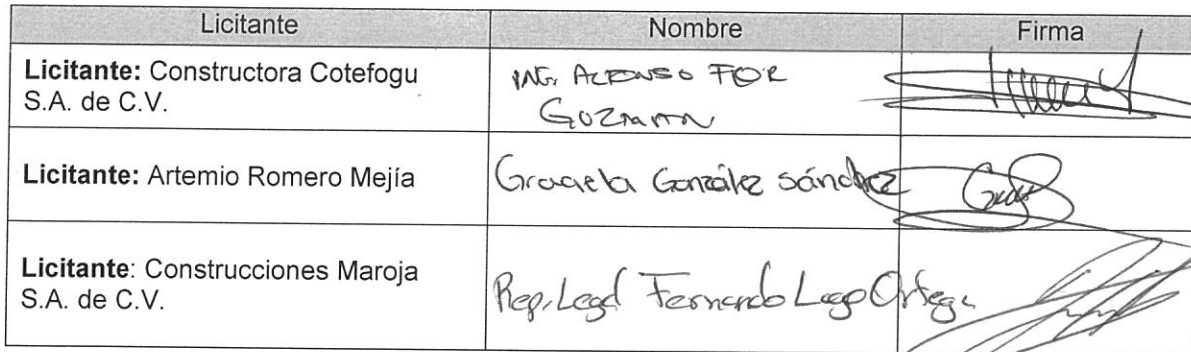 Licitante Nombre Firma
Licitante: Constructora Cotefogu
S.A. de C.V.
ING. ALFONSO FLOR
GUZMAN
Licitante: Artemio Romero Mejía
Graciela González Sánchez
Licitante: Construcciones Maroja
S.A. de C.V.
Rep. Legal Fernando Lugo Ortega